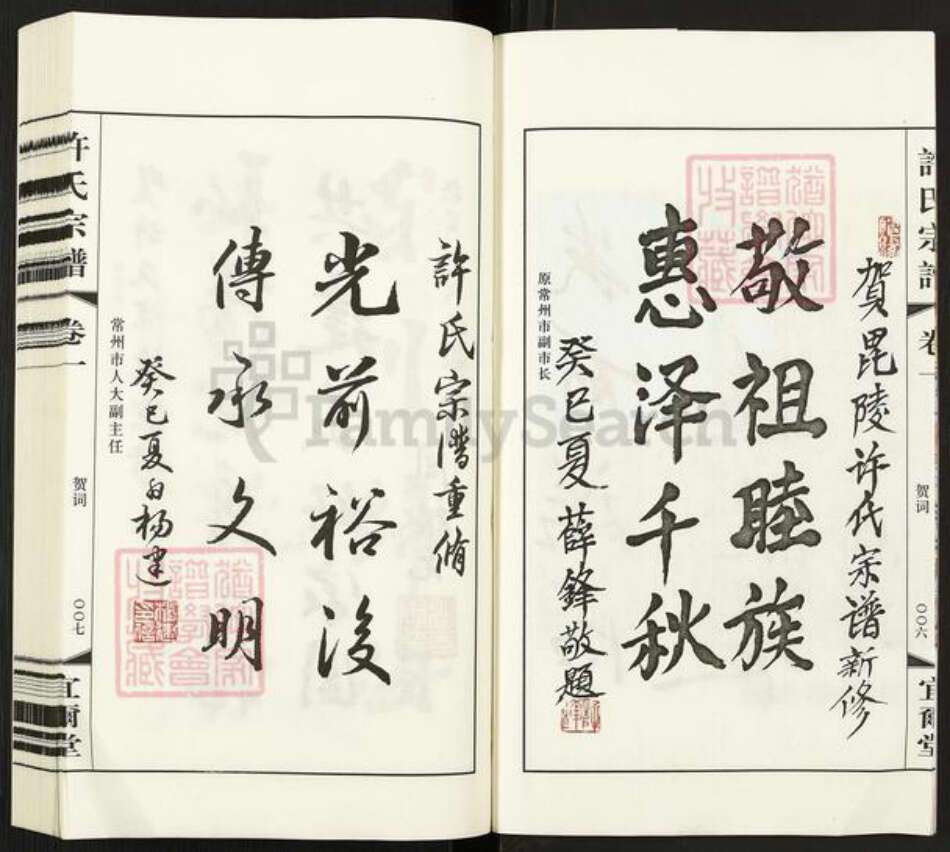 許氏宗譜
卷一
贺词
〇〇六
宜爾堂
賀毘陵许氏宗谱新修
敬祖睦族
惠泽千秋
原常州市副市长
癸巳夏 薛鋒敬題
許氏宗譜重脩
光前裕後
傳承文明
癸巳夏月杨建
常州市人大副主任
許氏宗譜
卷一
贺词
〇〇七
宜爾堂
FamilySearch